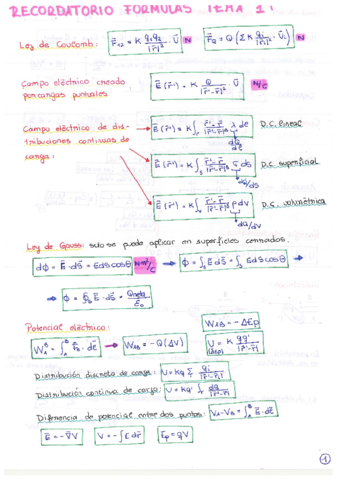 RECORDATORIO FORMULAS TEMA 1:
Ley de Coulomb: F₁₂ = K q₁q₂/|r|² · Ū N   F_Q = Q (Σ K qᵢ/|r|² · Ūᵢ) N
Campo eléctrico creado
por cargas puntuales
Ē(r̄) = K Q/|r̄-r̄'|² · Ū   N/C
Campo eléctrico de dis-
tribuciones continuas de
carga:
Ē(r̄) = K∫ r̄-r̄'/|r̄-r̄'|³ λ dl   D.C. lineal
dQ/dl
Ē(r̄) = K∫ r̄-r̄'/|r̄-r̄'|³ σ ds   D.C. superficial
dQ/ds
Ē(r̄) = K∫ r̄-r̄'/|r̄-r̄'|³ ρ dV   D.C. volumétrica
dQ/dV
Ley de Gauss: solo se puede aplicar en superficies cerradas.
dΦ = Ē·ds̄ = E ds cosΘ N·m²/C → Φ = ∫ₛ Ē ds̄ = ∫ₛ E ds cosΘ →
→ Φ = ∮ₛ Ē·ds̄ = Qneta/ε₀
Potencial eléctrico:
W_AB = -ΔEp
W_A^B = ∫_A^B F̄·dl̄ → W_AB = -Q(ΔV)
Distribución discreta de carga: U = KQ Σ qᵢ/|r̄-r̄'|
Distribución continua de carga: U = KQ ∫ dq/|r̄-r̄'|
Diferencia de potencial entre dos puntos: V_A-V_B = ∫_A^B Ē·dl̄
Ē = -∇̄V   V = -∫Ē dr̄   Ep = qV
1